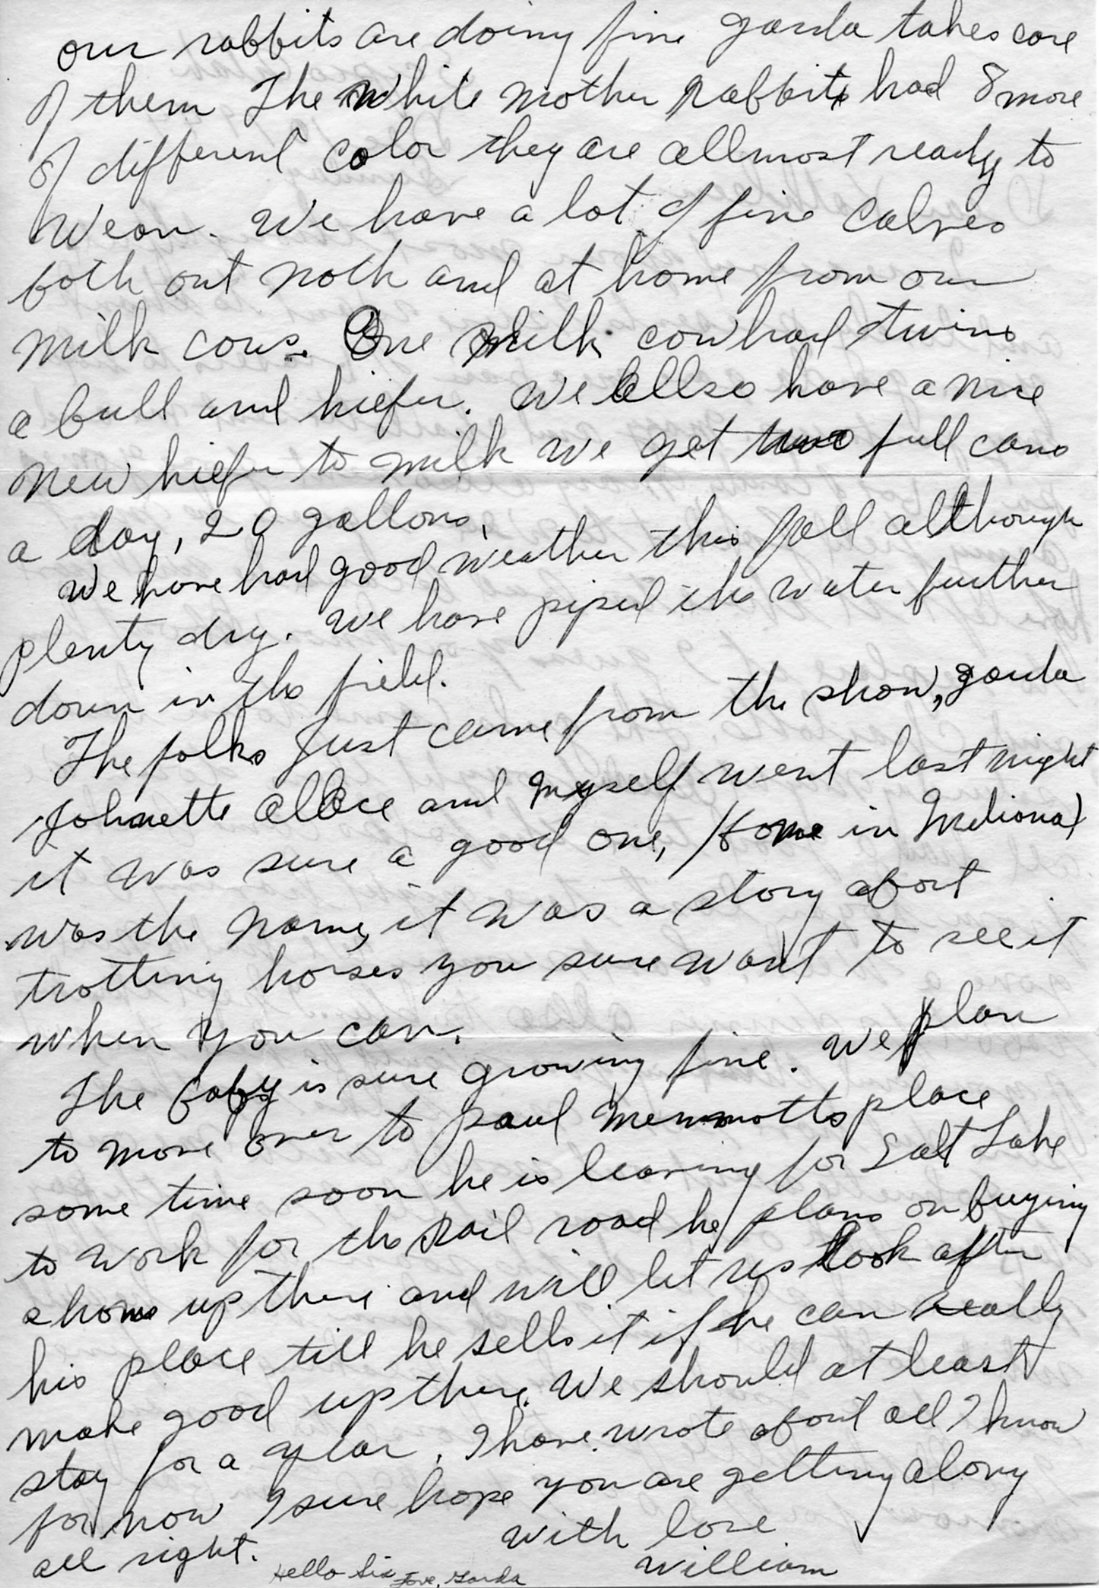 our rabbits are doing fine Garda takes care
of them The White mother rabbit had 8 more
of different color they are allmost ready to
Wean. We have a lot of fine calves
both out noth and at home from our
milk cows. One milk cow had twins
a bull and hiefer. We allso have a nice
new hiefer to milk we get two full cans
a day, 20 gallons.
We have had good weather this fall although
plenty dry. We have piped the water further
down in the field.
The folks Just came from the show, Garda
Johnette Allace and myself went last night
it was sure a good one, Home in Indiana
was the name, it was a story abort
trotting horses you sure want to see it
when you can.
The baby is sure growing fine. We plan
to move over to Paul Memmotts place
some time soon he is leaving for Salt Lake
to work for the Rail road he plans on buying
shoms up there and will let us look after
his place till he sells it if he can really
make good up there. We should at least
stay for a year. I have wrote about all I know
for now I sure hope you are getting along
all right.
With love
William
Hello Sis Love, Garda